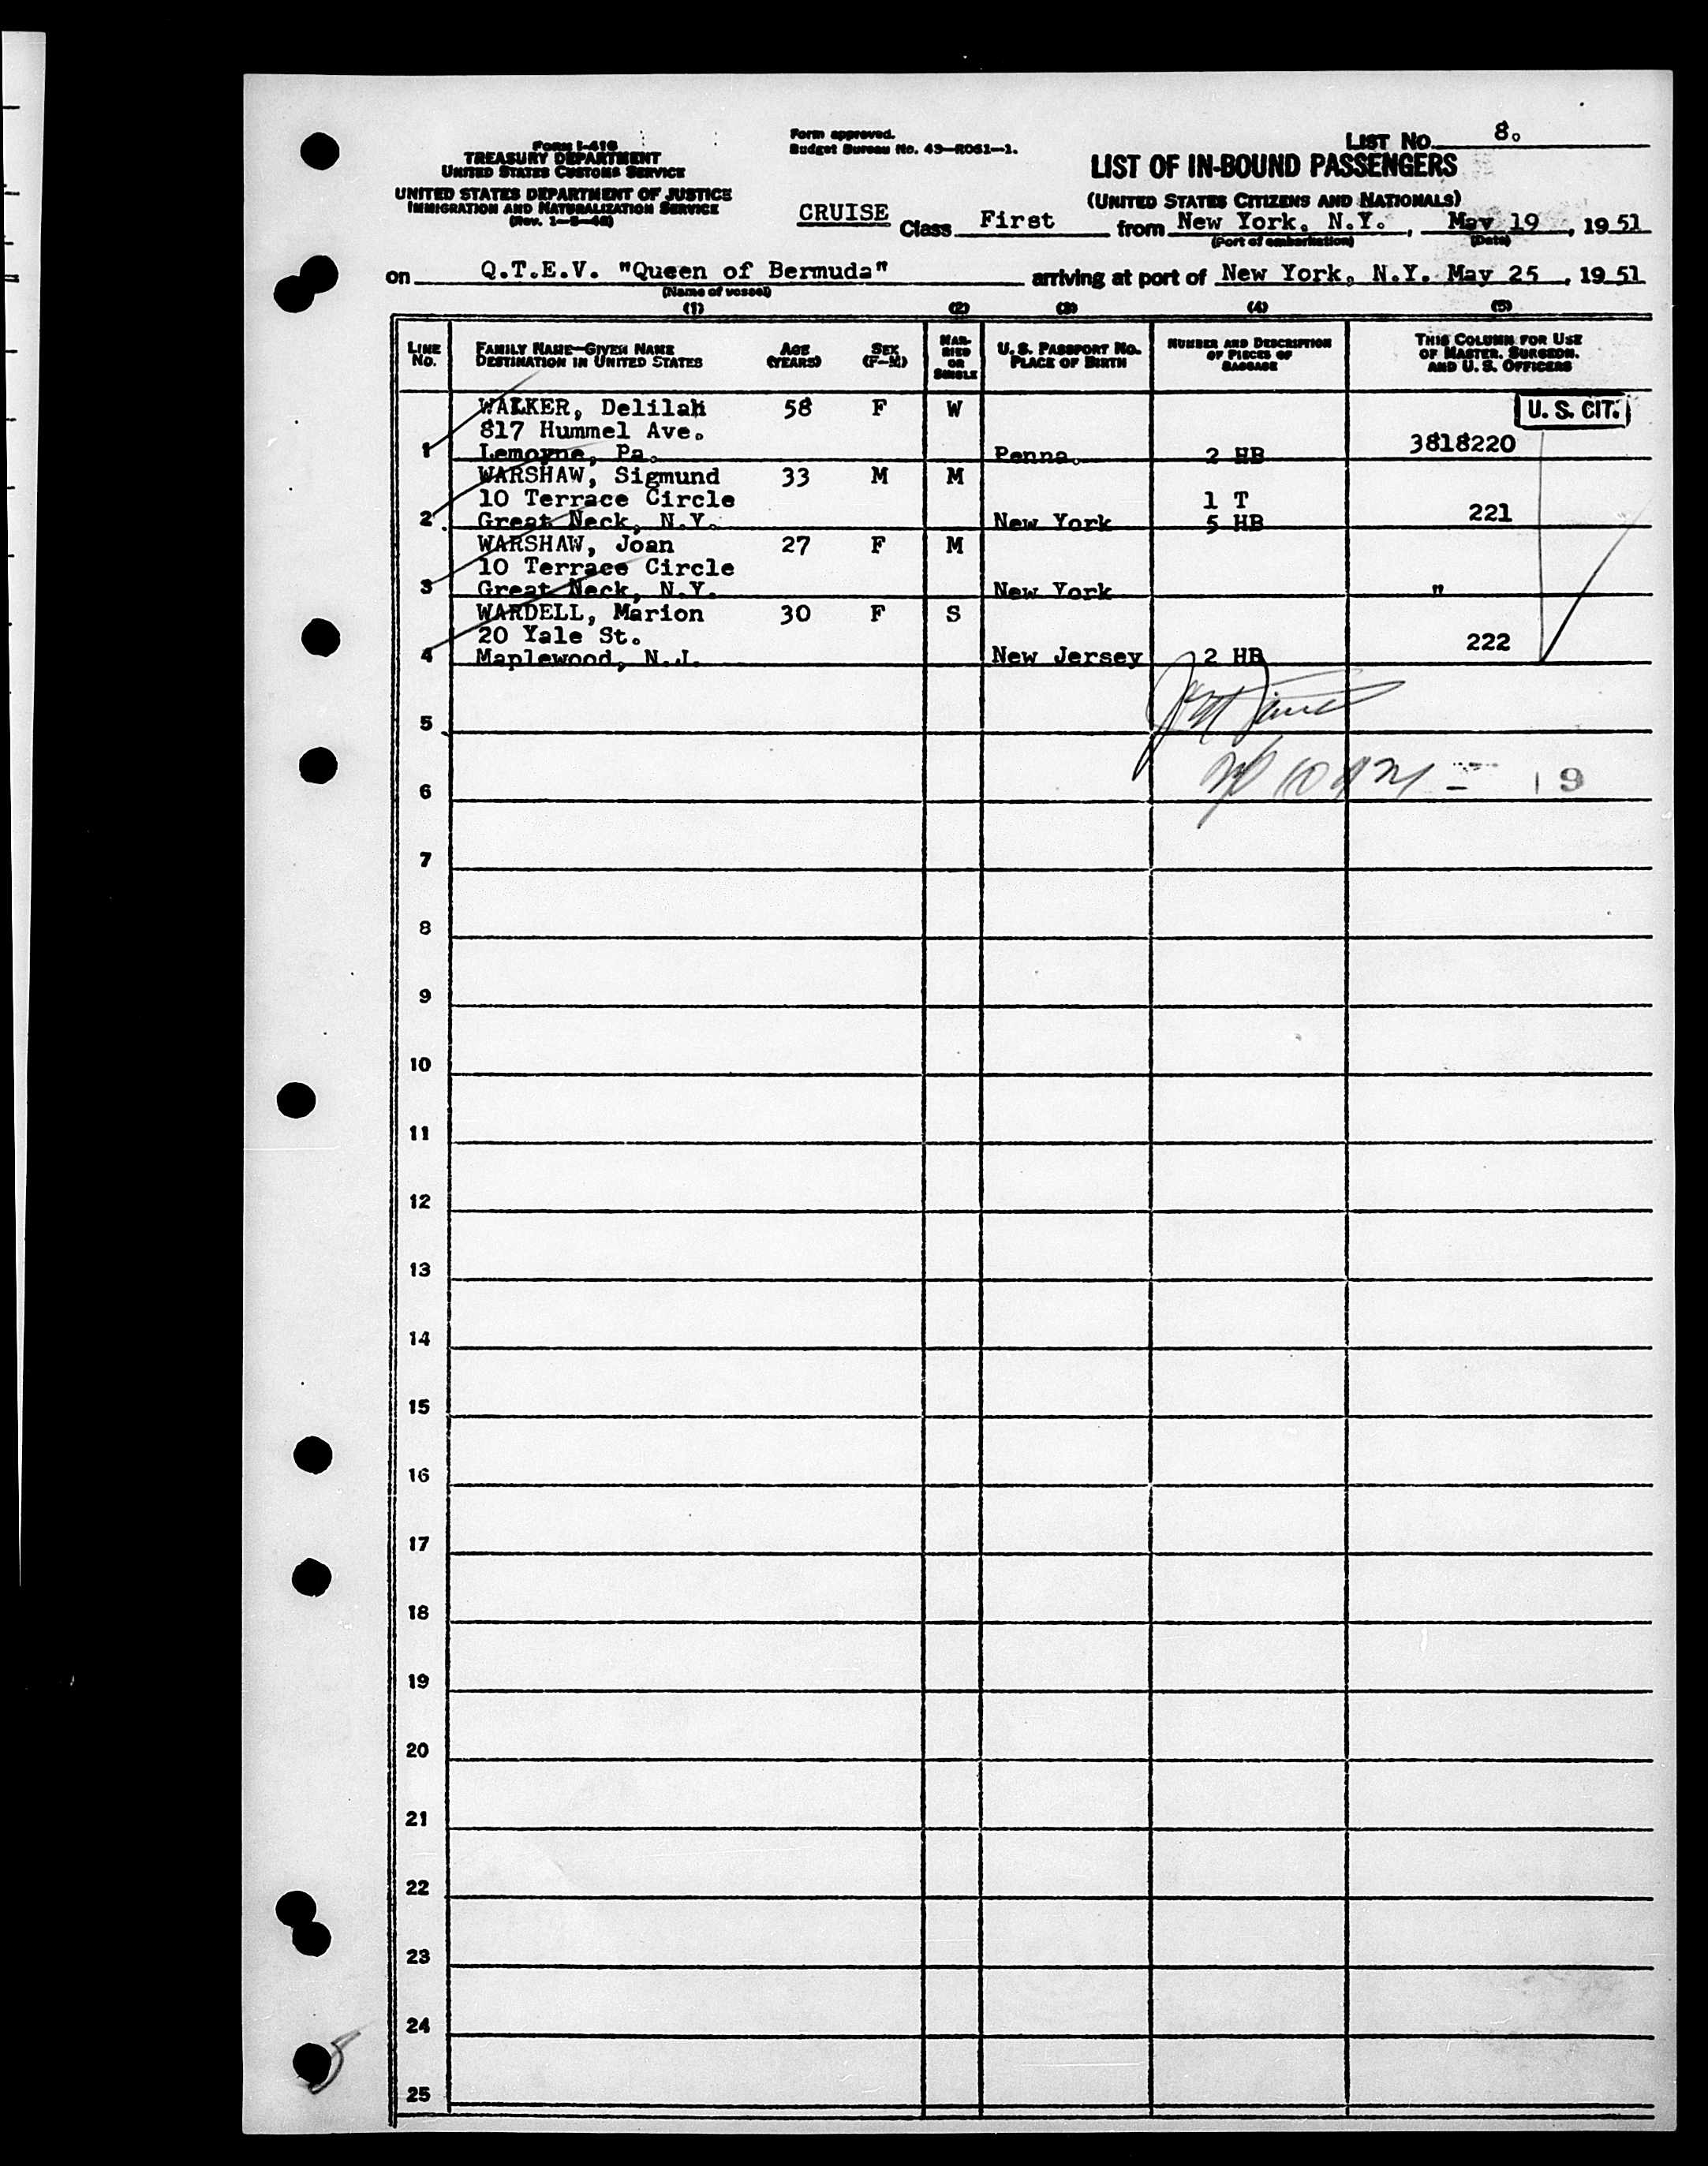 Form I-416
TREASURY DEPARTMENT
UNITED STATES CUSTOMS SERVICE
UNITED STATES DEPARTMENT OF JUSTICE
IMMIGRATION AND NATURALIZATION SERVICE
Form approved.
Budget Bureau No. 43-R061-1.
LIST NO. 8.
LIST OF IN-BOUND PASSENGERS
(UNITED STATES CITIZENS AND NATIONALS)
CRUISE Class First from New York, N.Y., May 19, 1951
(Port of embarkation) (Date)
on Q.T.E.V. "Queen of Bermuda" arriving at port of New York, N.Y. May 25, 1951
(Name of vessel)
(1) (2) (3) (4) (5)
LINE NO. FAMILY NAME—GIVEN NAME DESTINATION IN UNITED STATES AGE (YEARS) SEX (F-M) MARRIED OR SINGLE U. S. PASSPORT NO. PLACE OF BIRTH NUMBER AND DESCRIPTION OF PIECES OF BAGGAGE THIS COLUMN FOR USE OF MASTER, SURGEON, AND U. S. OFFICERS
WALKER, Delilah 58 F W U. S. CIT.
817 Hummel Ave.
1 Lemoyne, Pa. Penna. 2 HB 3818220
WARSHAW, Sigmund 33 M M
10 Terrace Circle 1 T
2 Great Neck, N.Y. New York 5 HB 221
WARSHAW, Joan 27 F M
10 Terrace Circle
3 Great Neck, N.Y. New York "
WARDELL, Marion 30 F S
20 Yale St. 222
4 Maplewood, N.J. New Jersey 2 HB
5
6
7
8
9
10
11
12
13
14
15
16
17
18
19
20
21
22
23
24
25